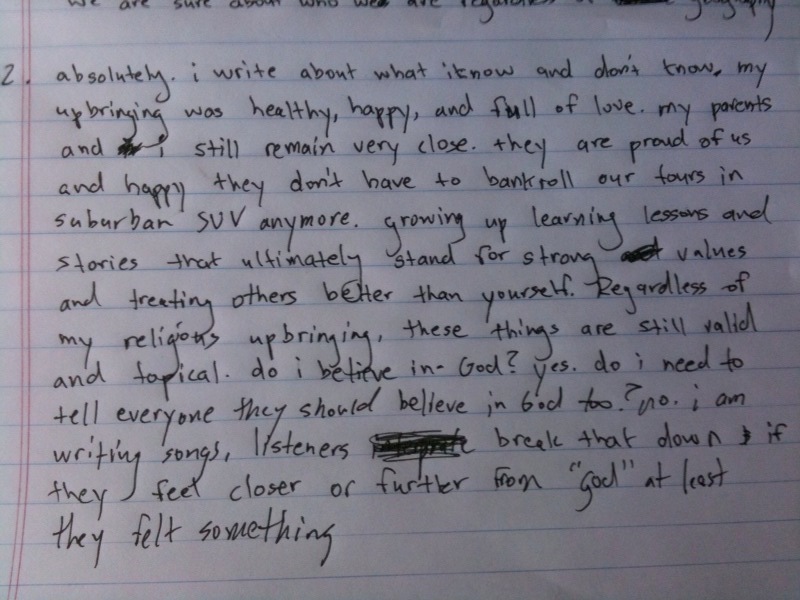 We are sure about who we are regardless of geography
2. absolutely. i write about what i know and don't know. my
upbringing was healthy, happy, and full of love. my parents
and i still remain very close. they are proud of us
and happy they don't have to bankroll our tours in
suburban SUV anymore. growing up learning lessons and
stories that ultimately stand for strong values
and treating others better than yourself. Regardless of
my religious upbringing, these things are still valid
and topical. do i believe in God? yes. do i need to
tell everyone they should believe in God too? no. i am
writing songs, listeners break that down & if
they feel closer or further from "god" at least
they felt something